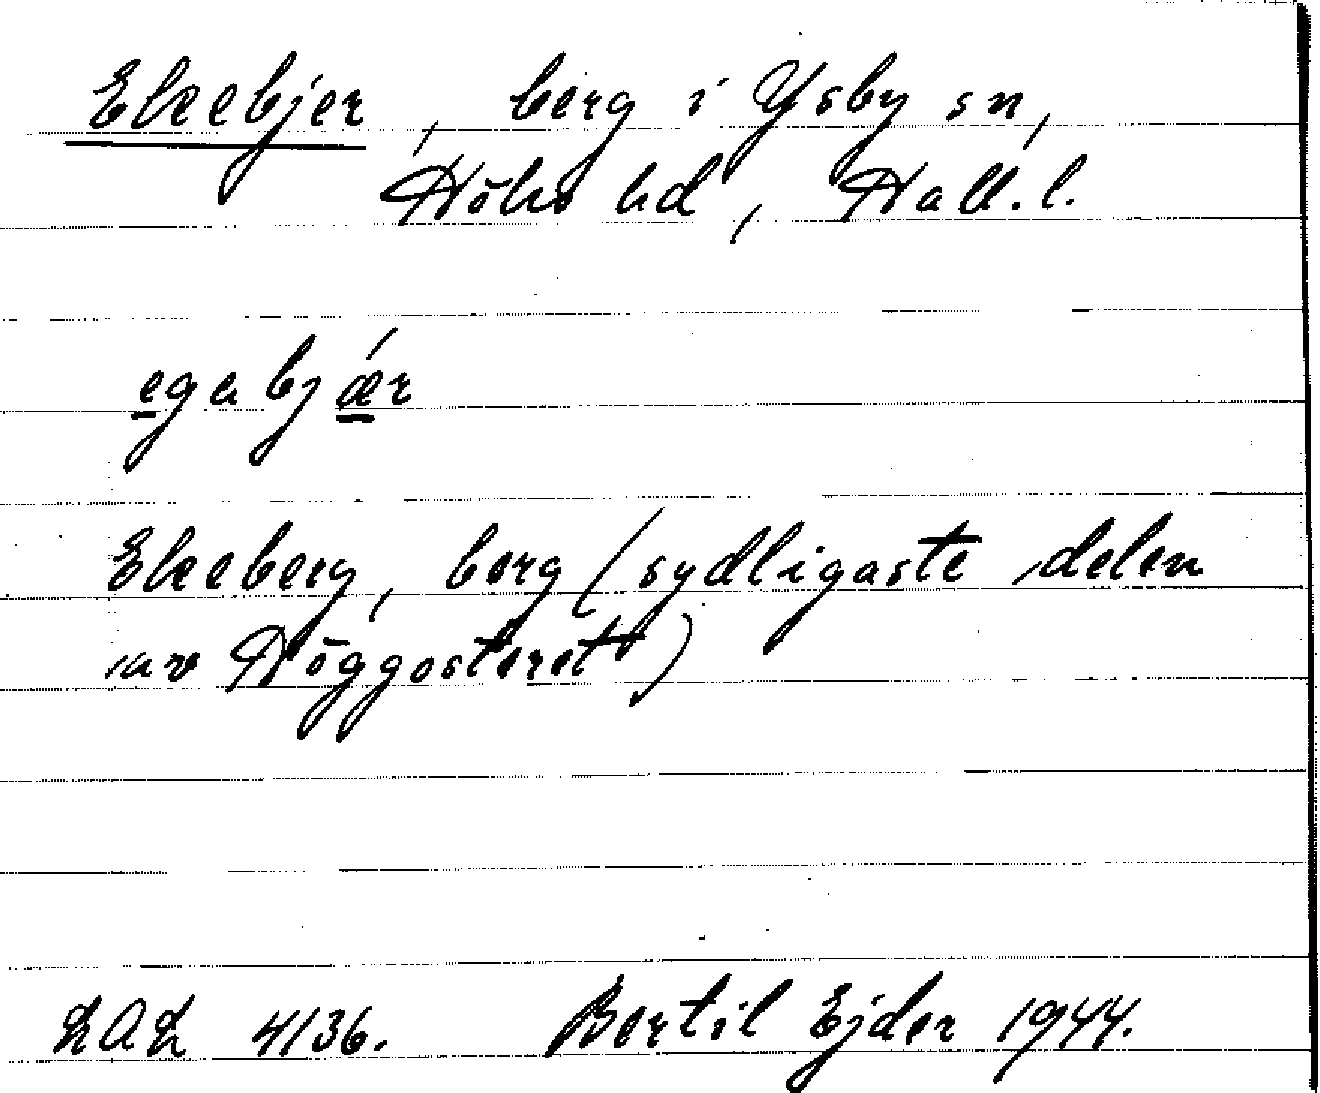 Ekebjer, berg i Ysby sn,
Höks hd, Hall. l.
egabjǽr
Ekeberg, berg (sydligaste delen
av Höggosteret)
LAL 4136. Bertil Ejder 1944.